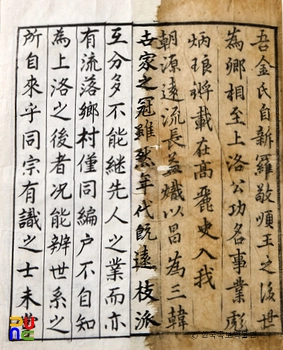 吾金氏自新羅敬順王之後世
為卿相至上洛公功名事業彪
炳 載在高麗史入我
朝源遠流長益熾以昌為三韓
世家之冠雖然年代旣遠枝派
互分多不能繼先人之業而亦
有流落鄉村僅同編户不自知
為上洛之後者况能辨世系之
所自來乎同宗有識之士未